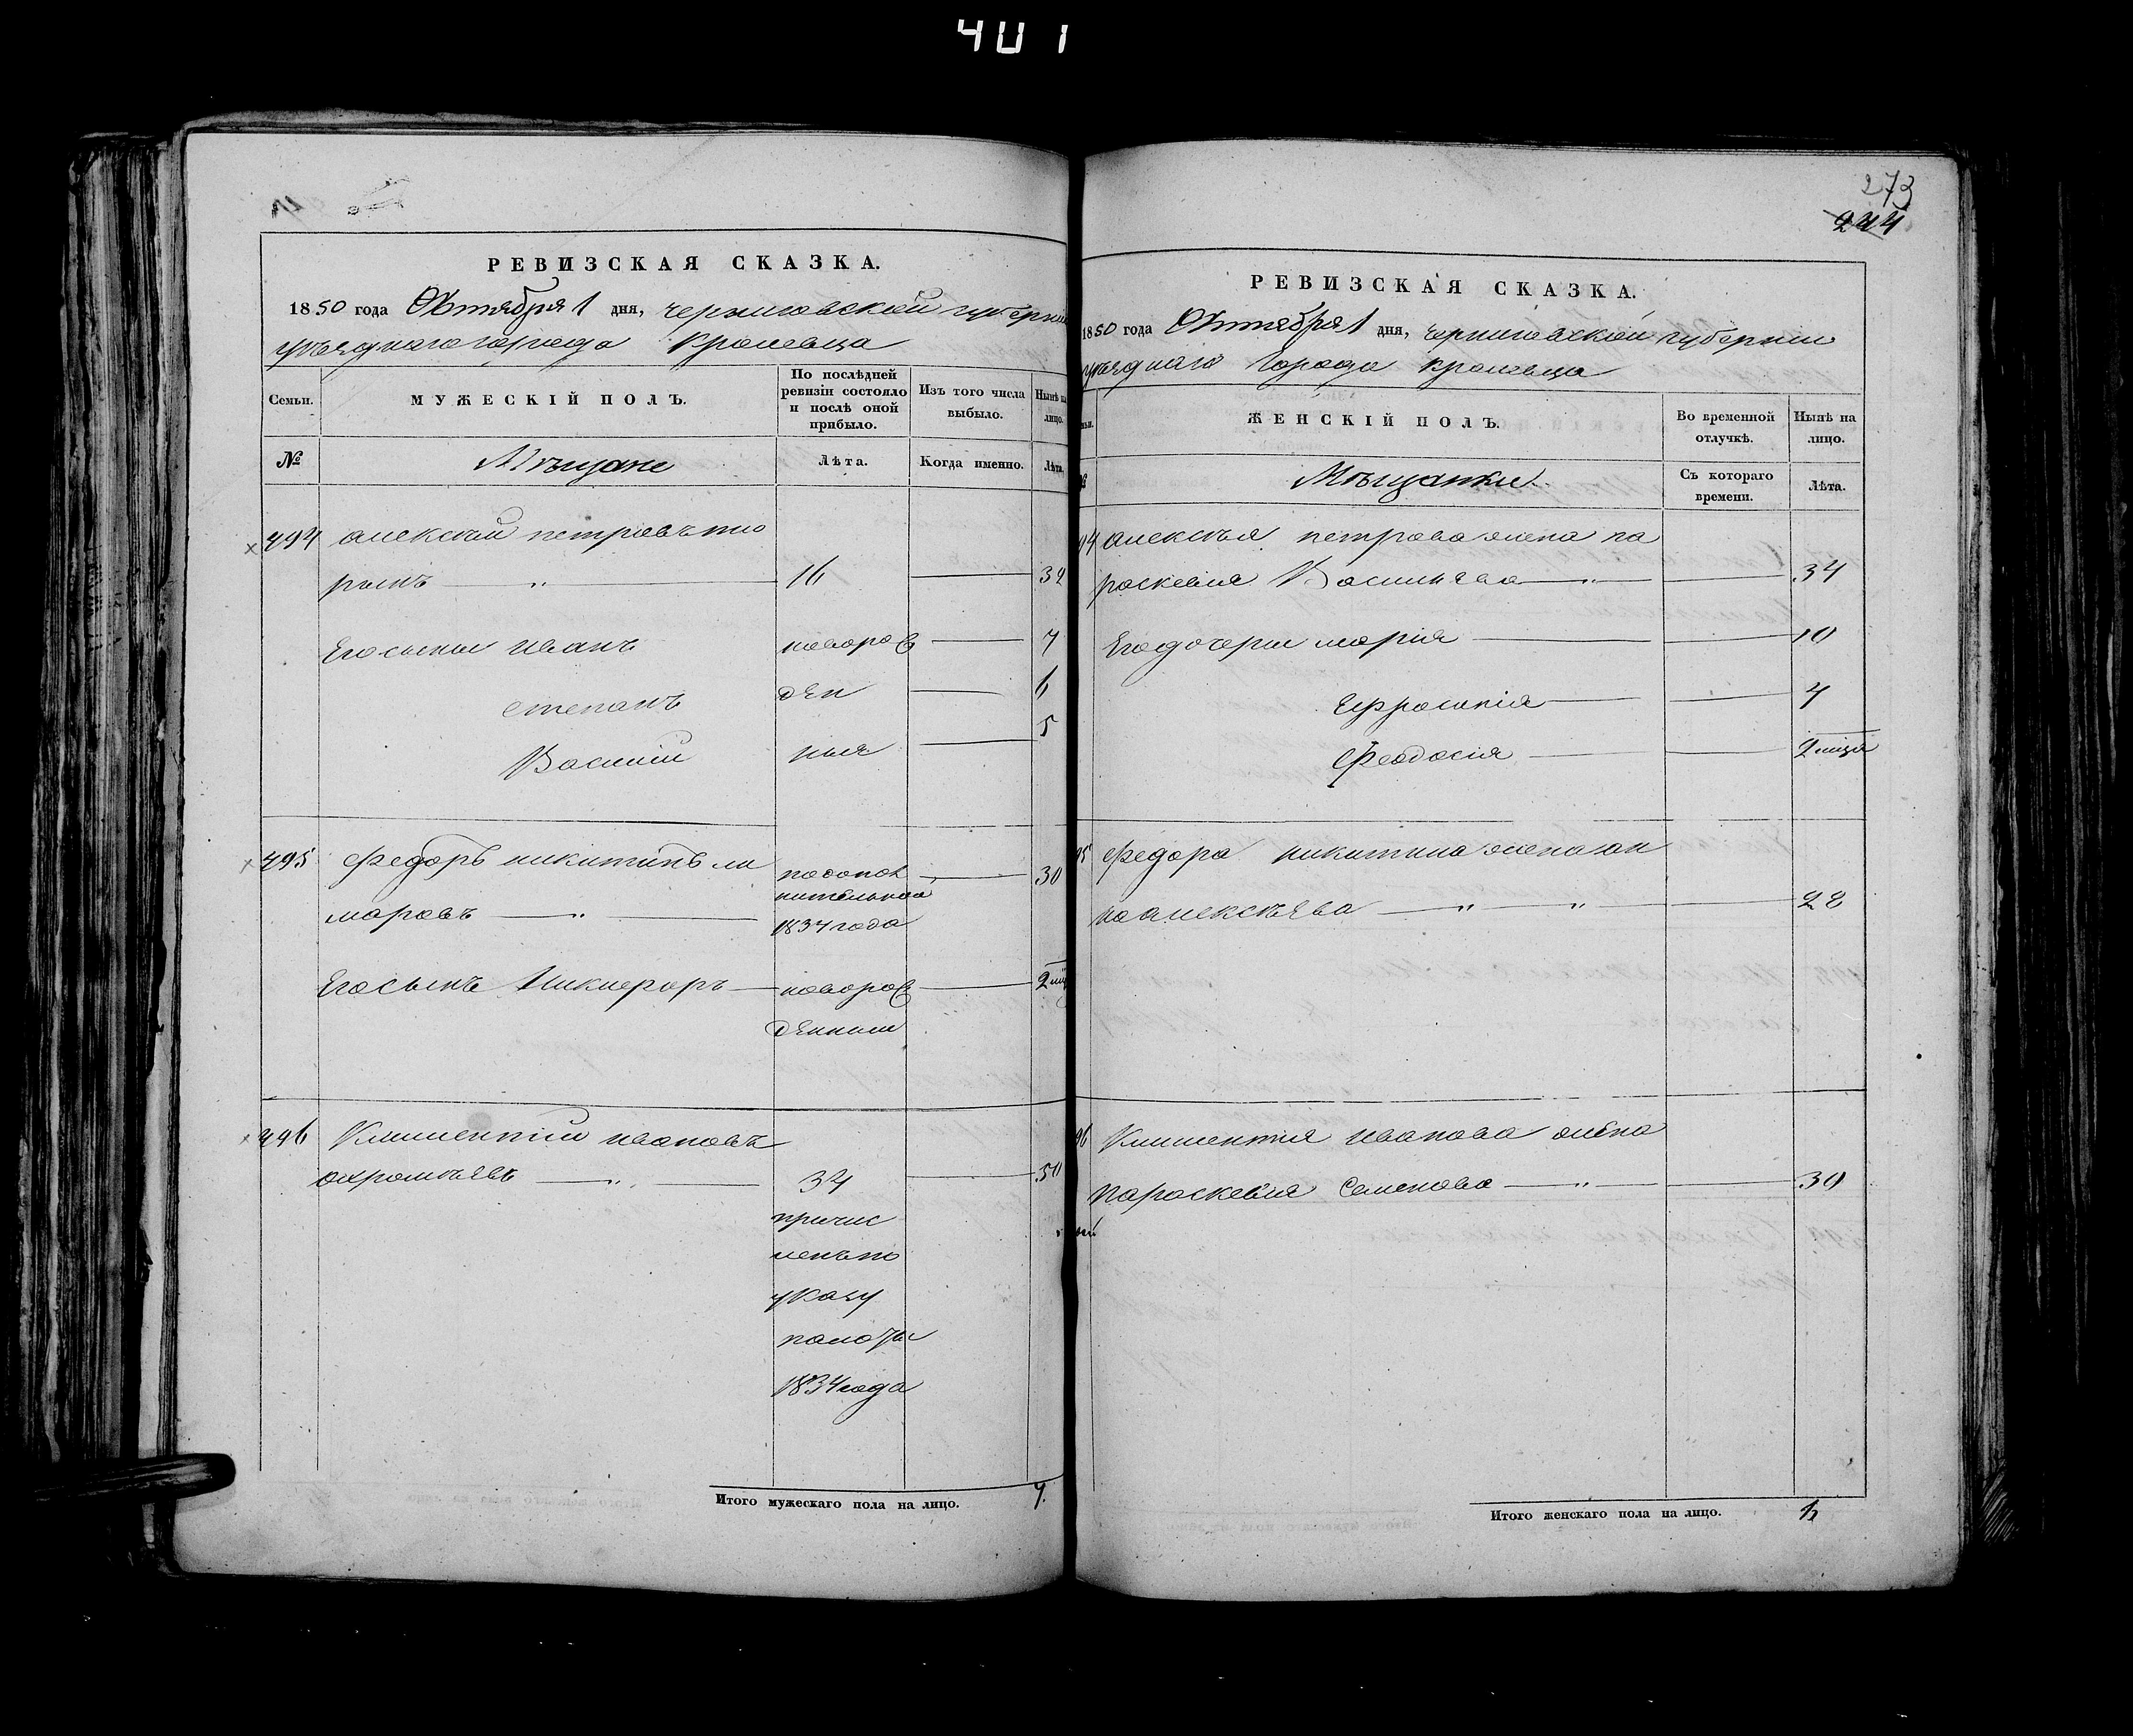 4U1
273
244
РЕВИЗСКАЯ СКАЗКА.
1850 года Октября 1 дня, черниговской губерніи
уѣзднаго города Кролевца
Семьи.
МУЖЕСКІЙ ПОЛЪ.
По послѣдней ревизіи состояло и послѣ оной прибыло.
Изъ того числа выбыло.
Нынѣ на лицо.
№
Мѣщане
Лѣта.
Когда именно.
Лѣта.
494 алексѣй петровъ тю
ринъ — „ — 16 — 32
Его сыны иванъ новоро — 7
степанъ ден — 6
Василій ныя — 5
495 Федоръ никитинъ ли
маровъ — „ — подопол — 30
нительной
1834 года
Его сынъ Никифоръ — новоро — 2
денный
496 Климентій ивановъ
охромѣевъ — „ — 34 — 50
причис
ленъ по
указу
палаты
1834 года
Итого мужескаго пола на лицо. 7.
РЕВИЗСКАЯ СКАЗКА.
1850 года Октября 1 дня, черниговской губерніи
уѣзднаго города кролевца
ЖЕНСКІЙ ПОЛЪ.
Во временной отлучкѣ.
Нынѣ на лицо.
Мѣщанки.
Съ котораго времени.
Лѣта.
94 алексѣя петрова жена па
раскевія Васильева — „ — 34
Его дочери марія — 10
Ефросинія — 4
Феодосія — 2 мѣся
95 Федора никитина жена ан
на алексѣева — „ — „ — 28
96 Климентія иванова жена
параскевія Семенова — „ — 30
Итого женскаго пола на лицо. 6